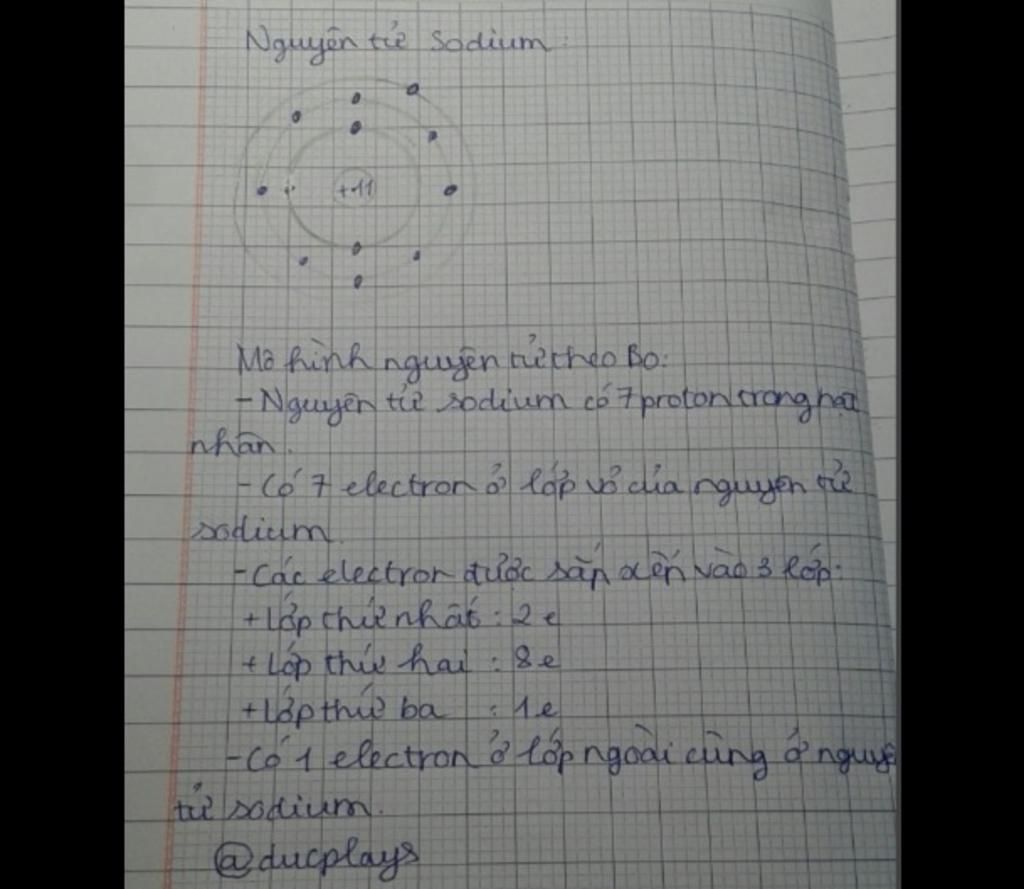 Nguyên tử sodium:
+11
Mô hình nguyên tử theo Bo:
- Nguyên tử sodium có 7 proton trong hạt
nhân.
- Có 7 electron ở lớp vỏ của nguyên tử
sodium
- Các electron được sắp xếp vào 3 lớp:
+ Lớp thứ nhất : 2 e
+ Lớp thứ hai : 8 e
+ Lớp thứ ba : 1 e
- Có 1 electron ở lớp ngoài cùng ở nguyê
tử sodium.
@ducplays